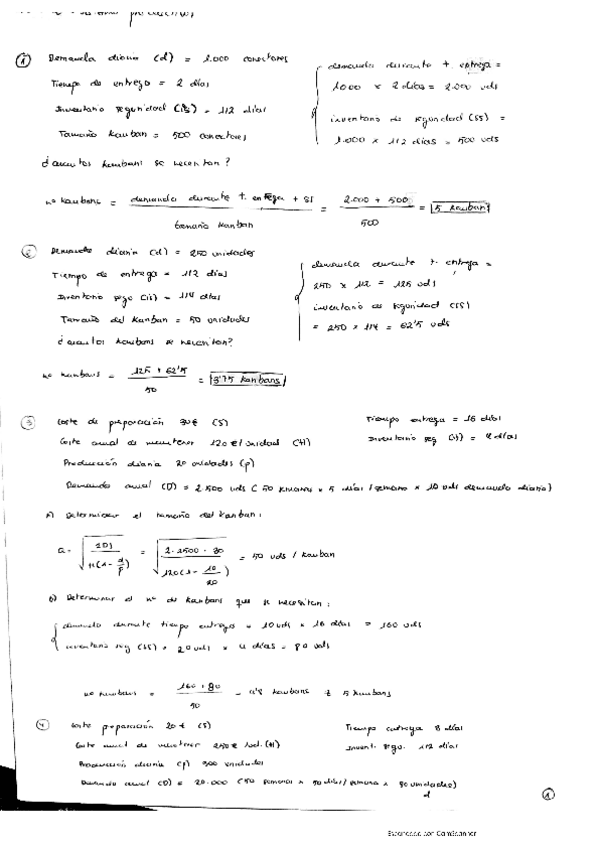 ① Demanda diaria (d) = 1.000 conectores
Tiempo de entrega = 2 días
Inventario seguridad (Is) = 1/2 días
Tamaño Kanban = 500 conectores
¿cuántos kanbans se necesitan?
demanda durante t. entrega =
1000 x 2 días = 2.000 uds
inventario de seguridad (SS) =
1.000 x 1/2 días = 500 uds
nº kanbans = demanda durante t. entrega + SI / tamaño kanban = 2.000 + 500 / 500 = 5 kanban
② Demanda diaria (d) = 250 unidades
Tiempo de entrega = 1/2 días
Inventario segu (is) = 1/4 días
Tamaño del Kanban = 50 unidades
¿cuántos kanbans se necesitan?
demanda durante t. entrega =
250 x 1/2 = 125 uds
inventario de seguridad (SS)
= 250 x 1/4 = 62'5 uds
nº kanbans = 125 + 62'5 / 50 = 3'75 kanbans
③ Coste de preparación 30€ (S)
Coste anual de mantener 120€/unidad (H)
Producción diaria 20 unidades (p)
Demanda anual (D) = 2.500 uds (50 semanas x 5 días/semana x 10 uds demanda diaria)
Tiempo entrega = 16 días
Inventario seg = 4 días
a) Determinar el tamaño del kanban:
Q = √ 2DS / H(1 - d/p) = √ 2·2500·30 / 120(1 - 10/20) = 50 uds / kanban
b) Determinar el nº de kanbans que se necesitan:
demanda durante tiempo entrega = 10 uds x 16 días = 160 uds
inventario seg (SS) = 20 uds x 4 días = 80 uds
nº kanbans = 160 + 80 / 50 = 4'8 kanbans ≈ 5 kanbans
④ Coste preparación 20€ (S)
Coste anual de mantener 250€ /ud. (H)
Producción diaria (p) 300 unidades
Demanda anual (D) = 20.000
Tiempo entrega 8 días
Invent. segu. 1/2 días
①
Escaneado con CamScanner